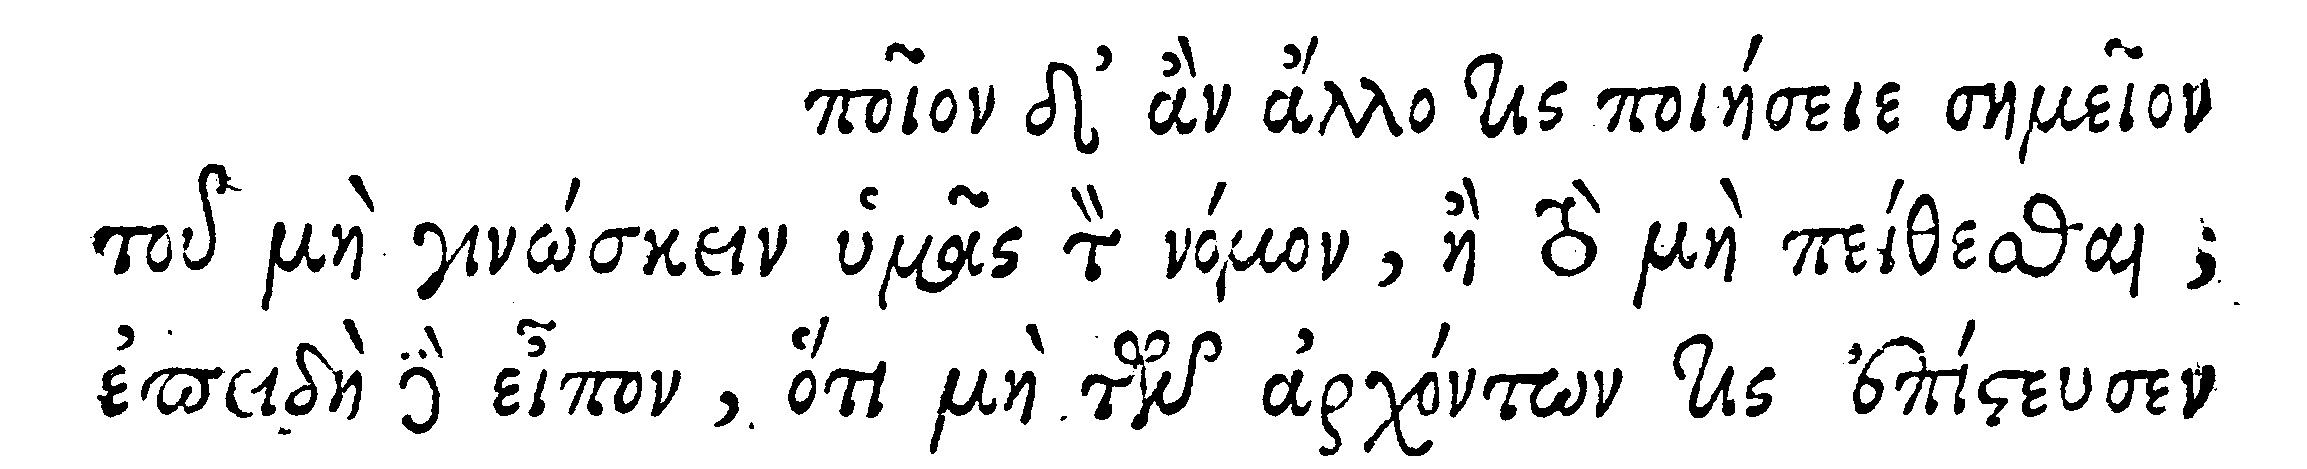 ποῖον δ’ ἂν ἄλλο τις ποιήσειε σημεῖον
τοῦ μὴ γινώσκειν ὑμᾶς τὸν νόμον, ἢ τὸ μὴ πείθεσθαι;
ἐπειδὴ γὰρ εἶπον, ὅτι μὴ τῶν ἀρχόντων τις ἐπίστευσεν